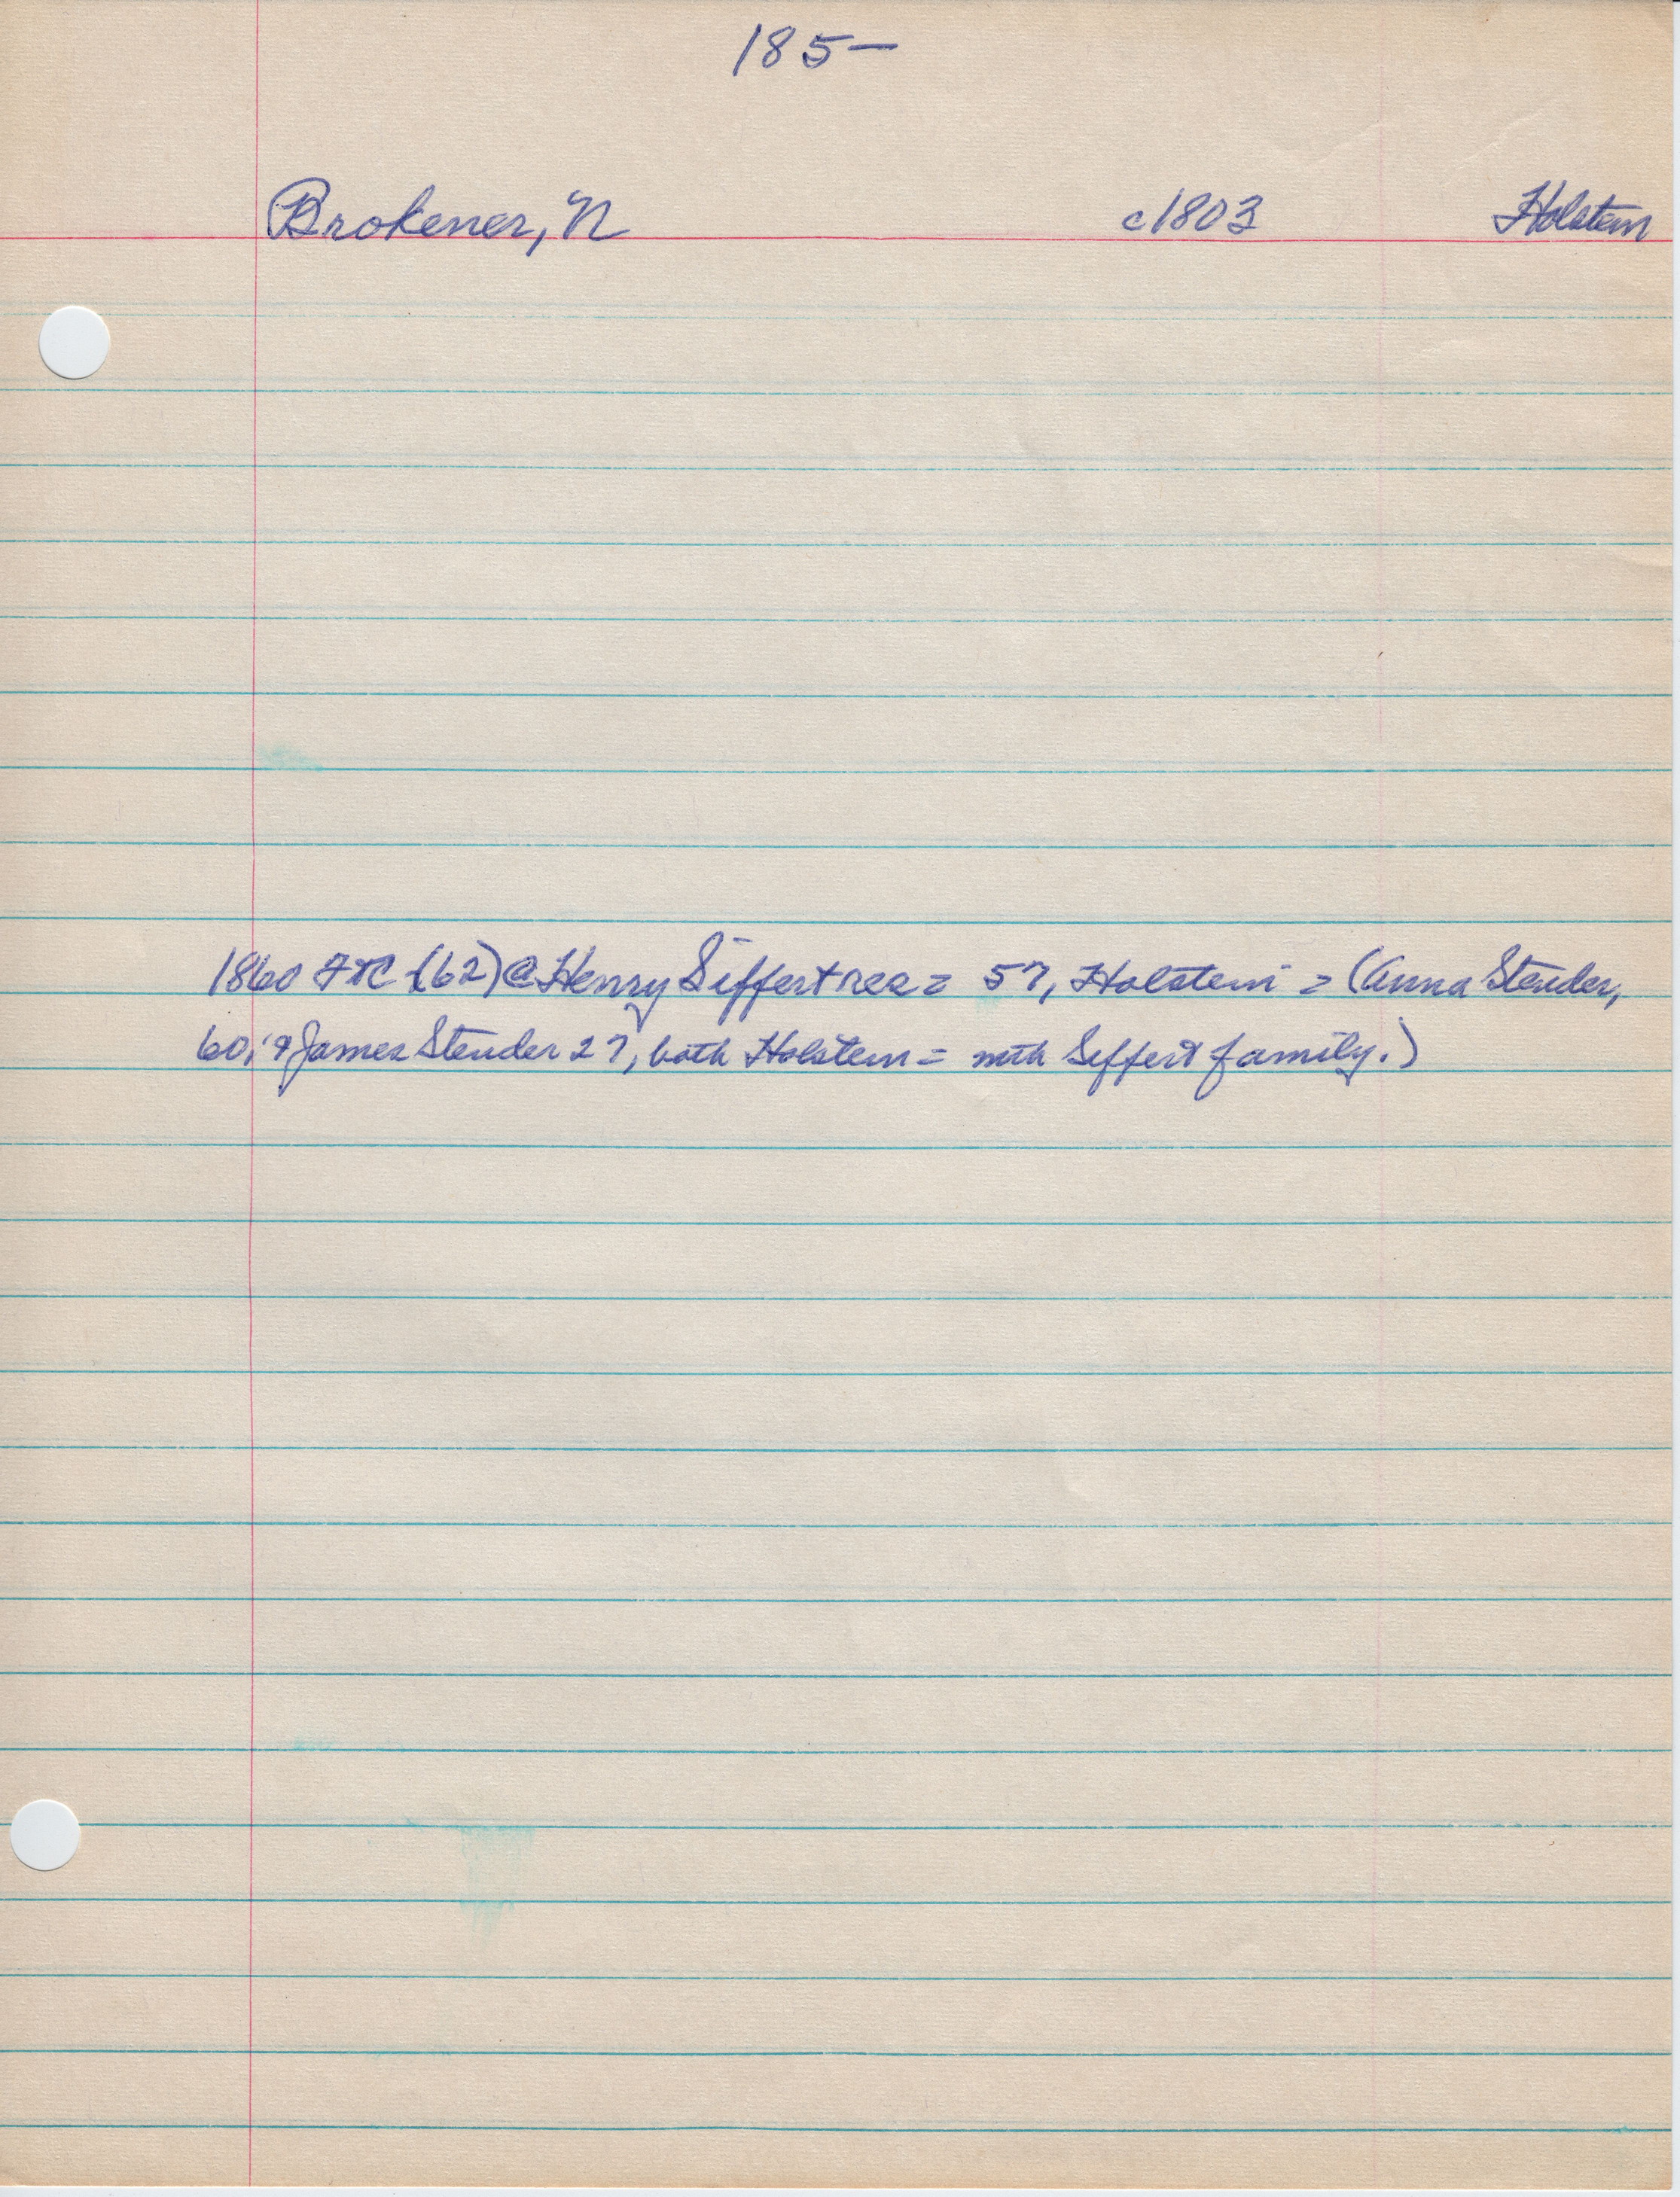 185-
Brokener, N c1803 Holstein
1860 FTC (62) @ Henry Siffert res = 57, Holstein = (Anna Steuder,
60, & James Steuder 27, both Holstein = with Seffert family.)